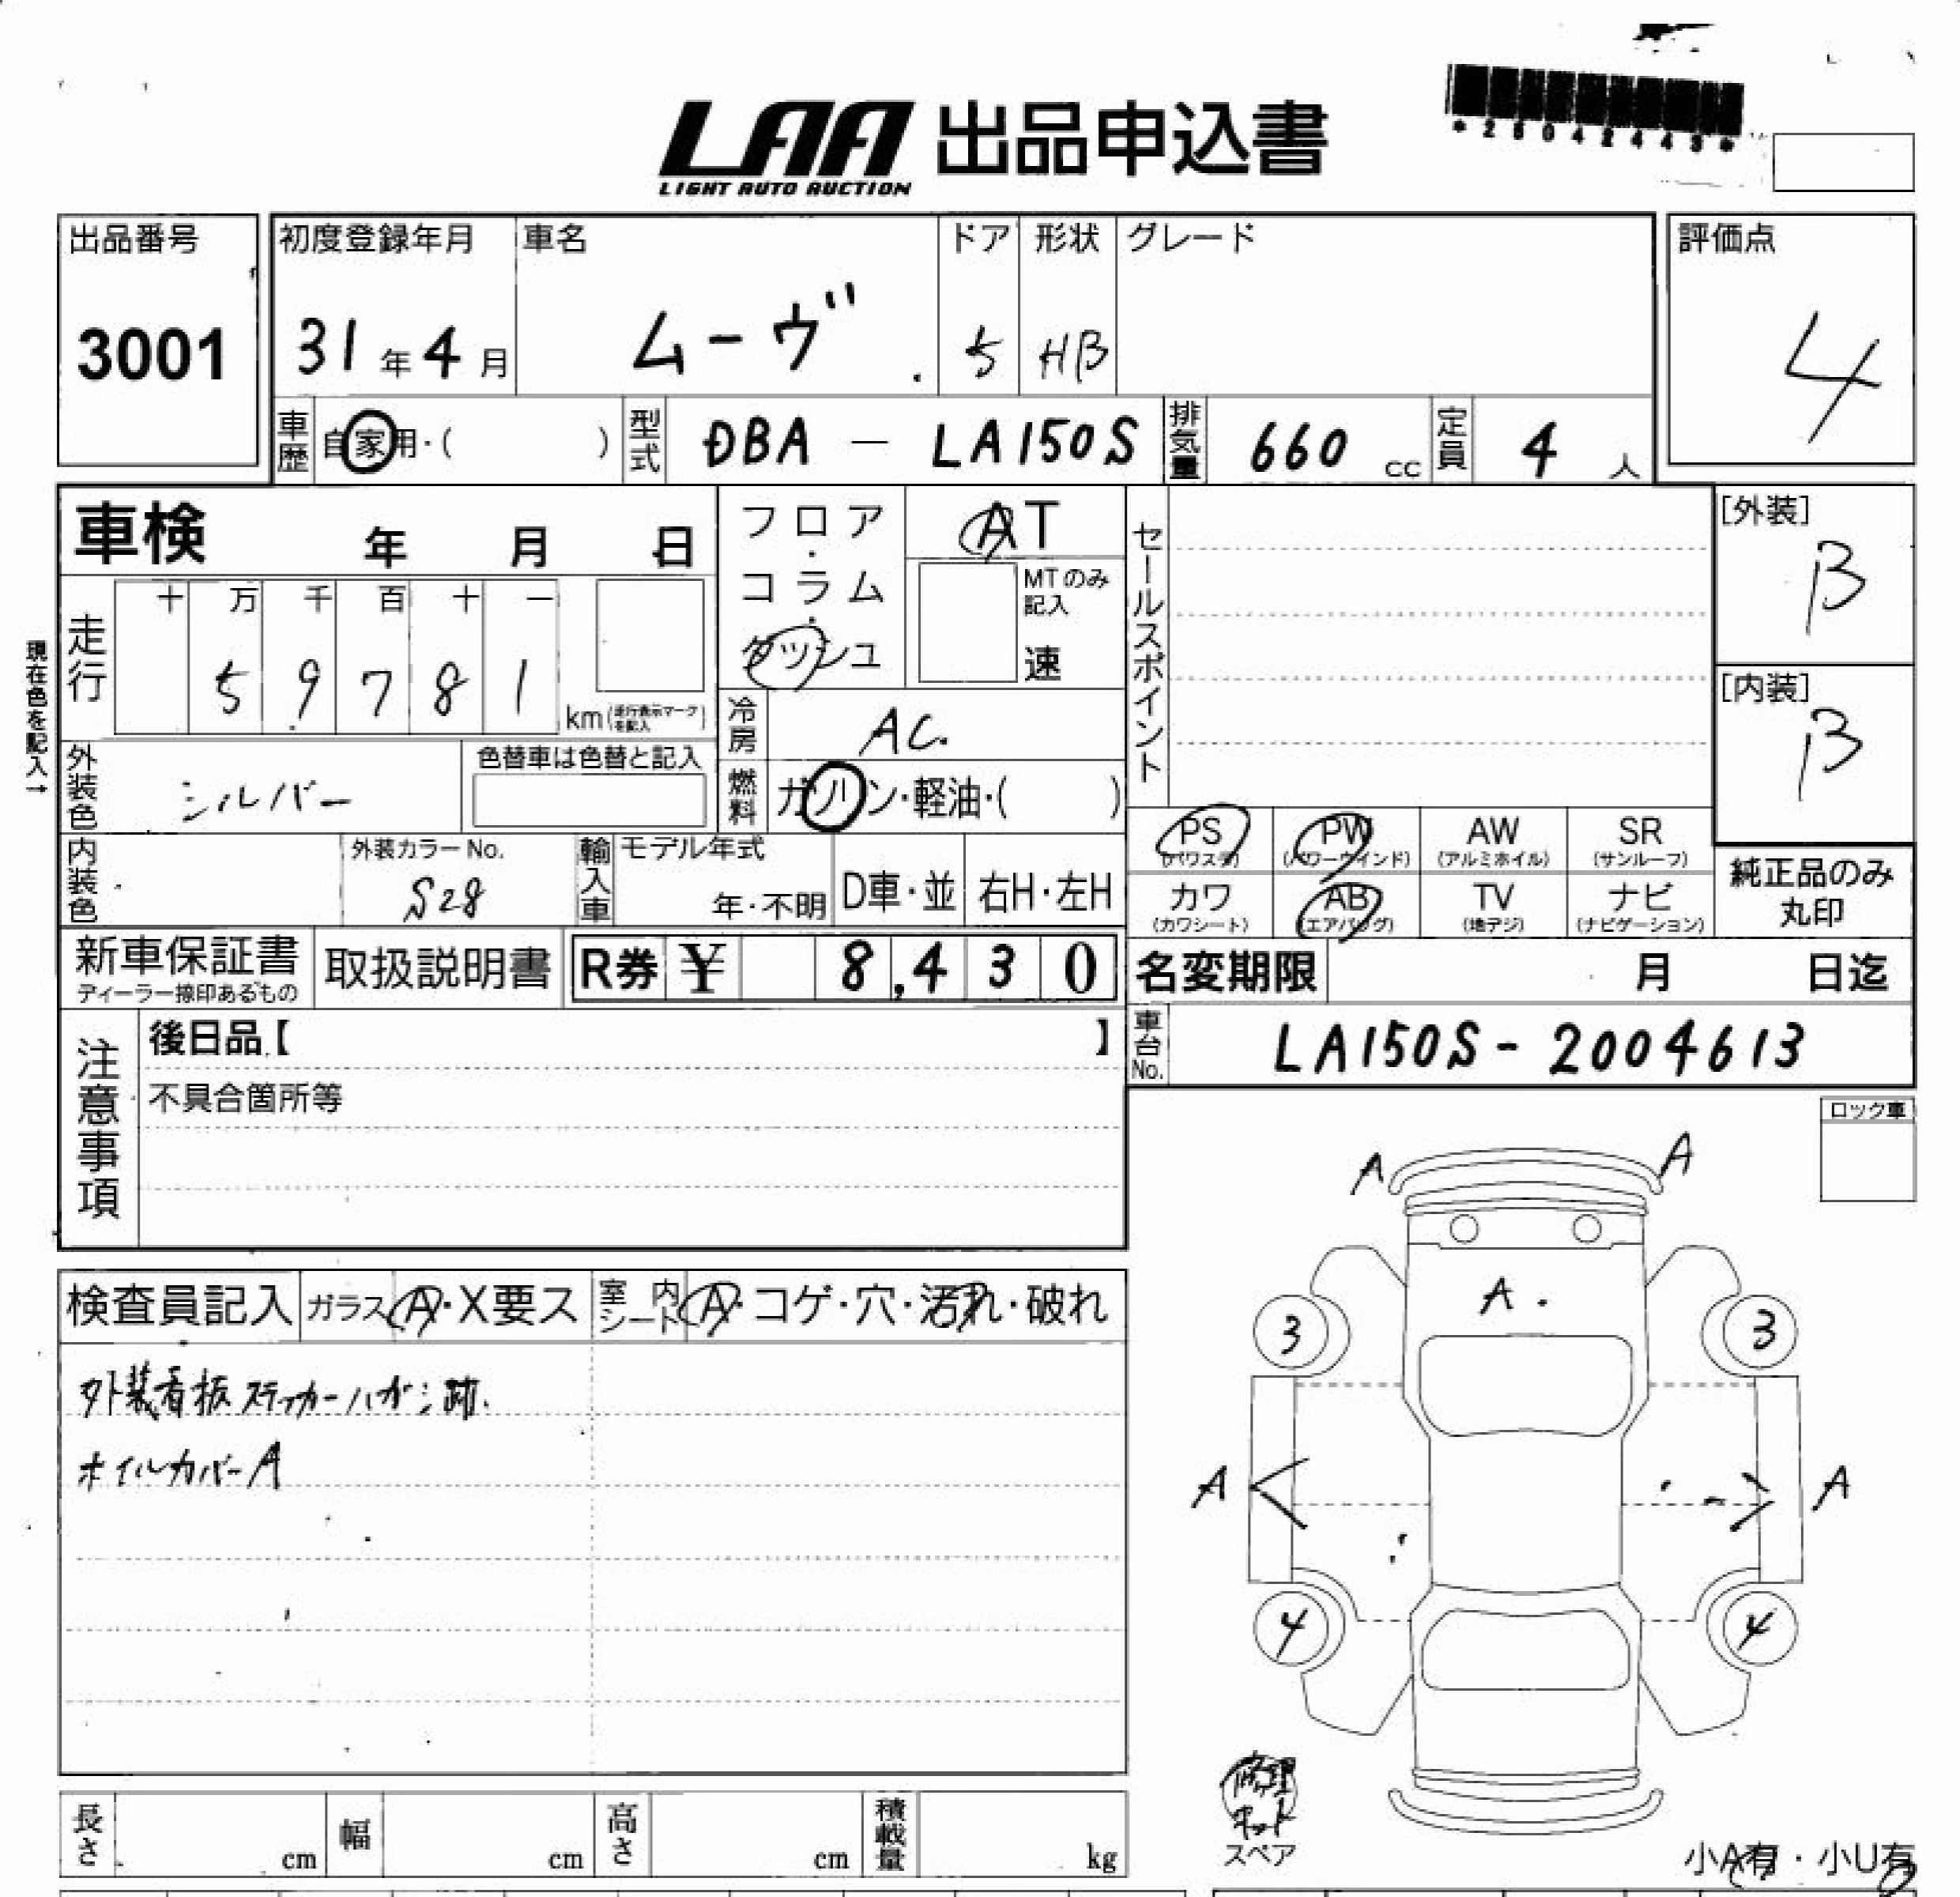 *25042443*
LAA 出品申込書
LIGHT AUTO AUCTION
出品番号
3001
初度登録年月 車名 ドア 形状 グレード
31年4月 ムーヴ 5 HB
評価点
4
車歴 自家用・( ) 型式 DBA - LA150S 排気量 660 cc 定員 4 人
車検 年 月 日
フロア・コラム・ダッシュ
AT
MTのみ記入
速
セールスポイント
[外装]
B
[内装]
B
現在色を記入→
走行 十 万 千 百 十 一
5 9 7 8 1 km(走行表示マークを記入)
冷房 AC.
外装色 シルバー 色替車は色替と記入
燃料 ガソリン・軽油・( )
PS (パワステ) PW (パワーウインド) AW (アルミホイル) SR (サンルーフ)
カワ (カワシート) AB (エアバッグ) TV (地デジ) ナビ (ナビゲーション)
純正品のみ丸印
内装色 外装カラーNo. S28 輸入車 モデル年式 年・不明 D車・並 右H・左H
新車保証書 ディーラー捺印あるもの 取扱説明書 R券 ¥ 8,430
名変期限 月 日迄
車台No. LA150S-2004613
注意事項
後日品【 】
不具合箇所等
ロック車
A A
A.
3 3
A A
4 4
検査員記入 ガラス A・X要ス 室内シート A・コゲ・穴・汚れ・破れ
外装看板ステッカーハガシ跡.
ホイルカバーA
修理キット
スペア
小A有・小U有
長さ cm 幅 cm 高さ cm 積載量 kg